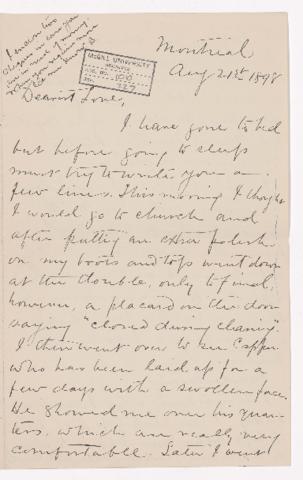 I enclose two
cheques in case you
are in need of money
when you
McGILL UNIVERSITY
ARCHIVES
ACC. NO.
REF.
Montreal
Aug 21st 1898
Dearest Love,
I have gone to bed
but before going to sleep
must try to write you a
few lines. This morning I thought
I would go to church and
after putting an extra polish
on my boots and togs went down
at the double, only to find,
however, a placard on the door
saying "closed during cleaning".
I then went over to see Capper
who has been laid up for a
few days with a swollen face.
He showed me over his quar-
ters, which are really very
comfortable. Later I went